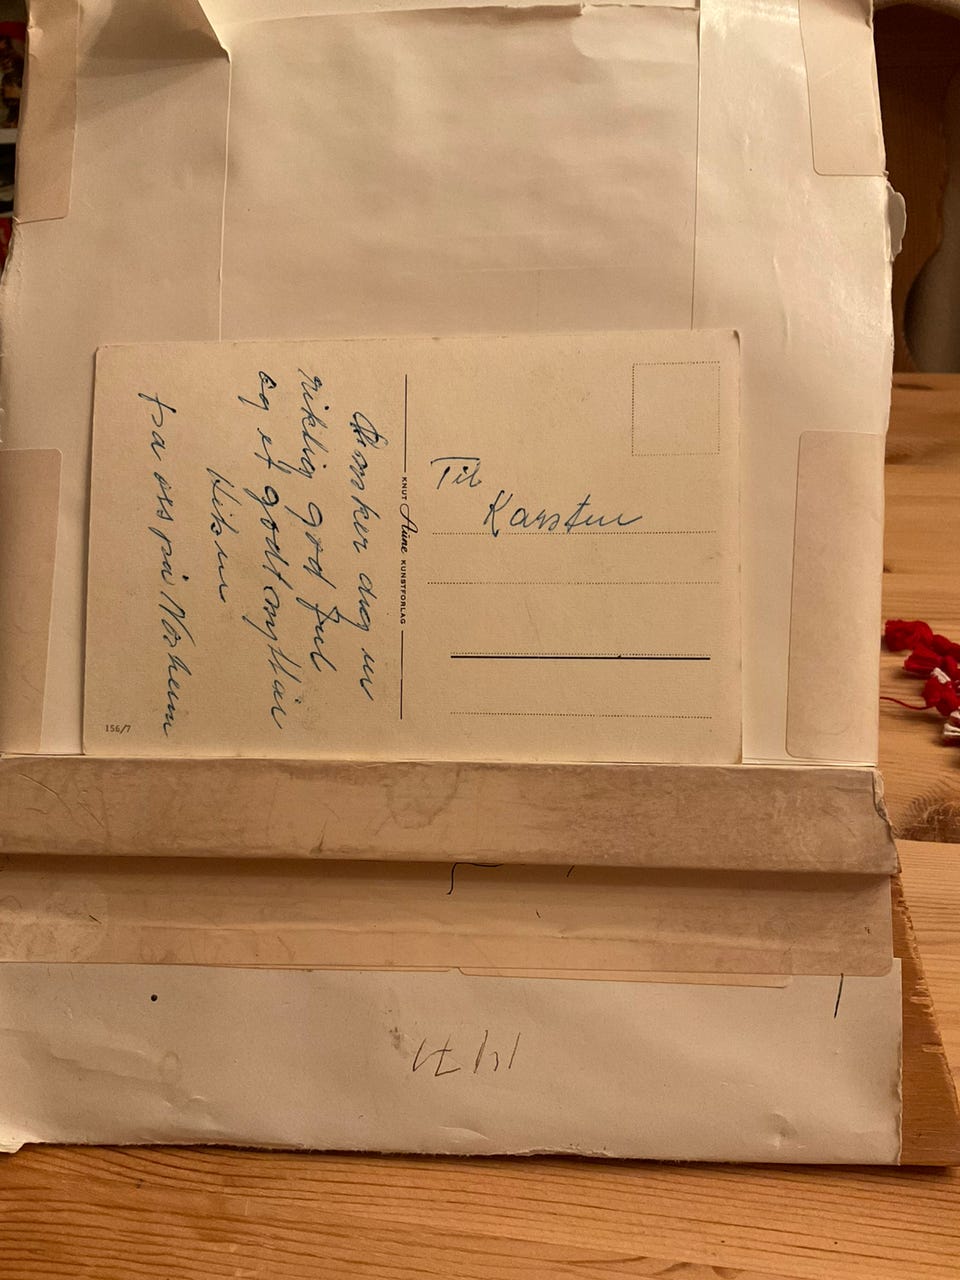 Ønsker deg en
riktig god Jul
og et godt nyttår
Hilsen
fra oss på Norheim
156/7
KNUT Aune KUNSTFORLAG
Til
Karsten